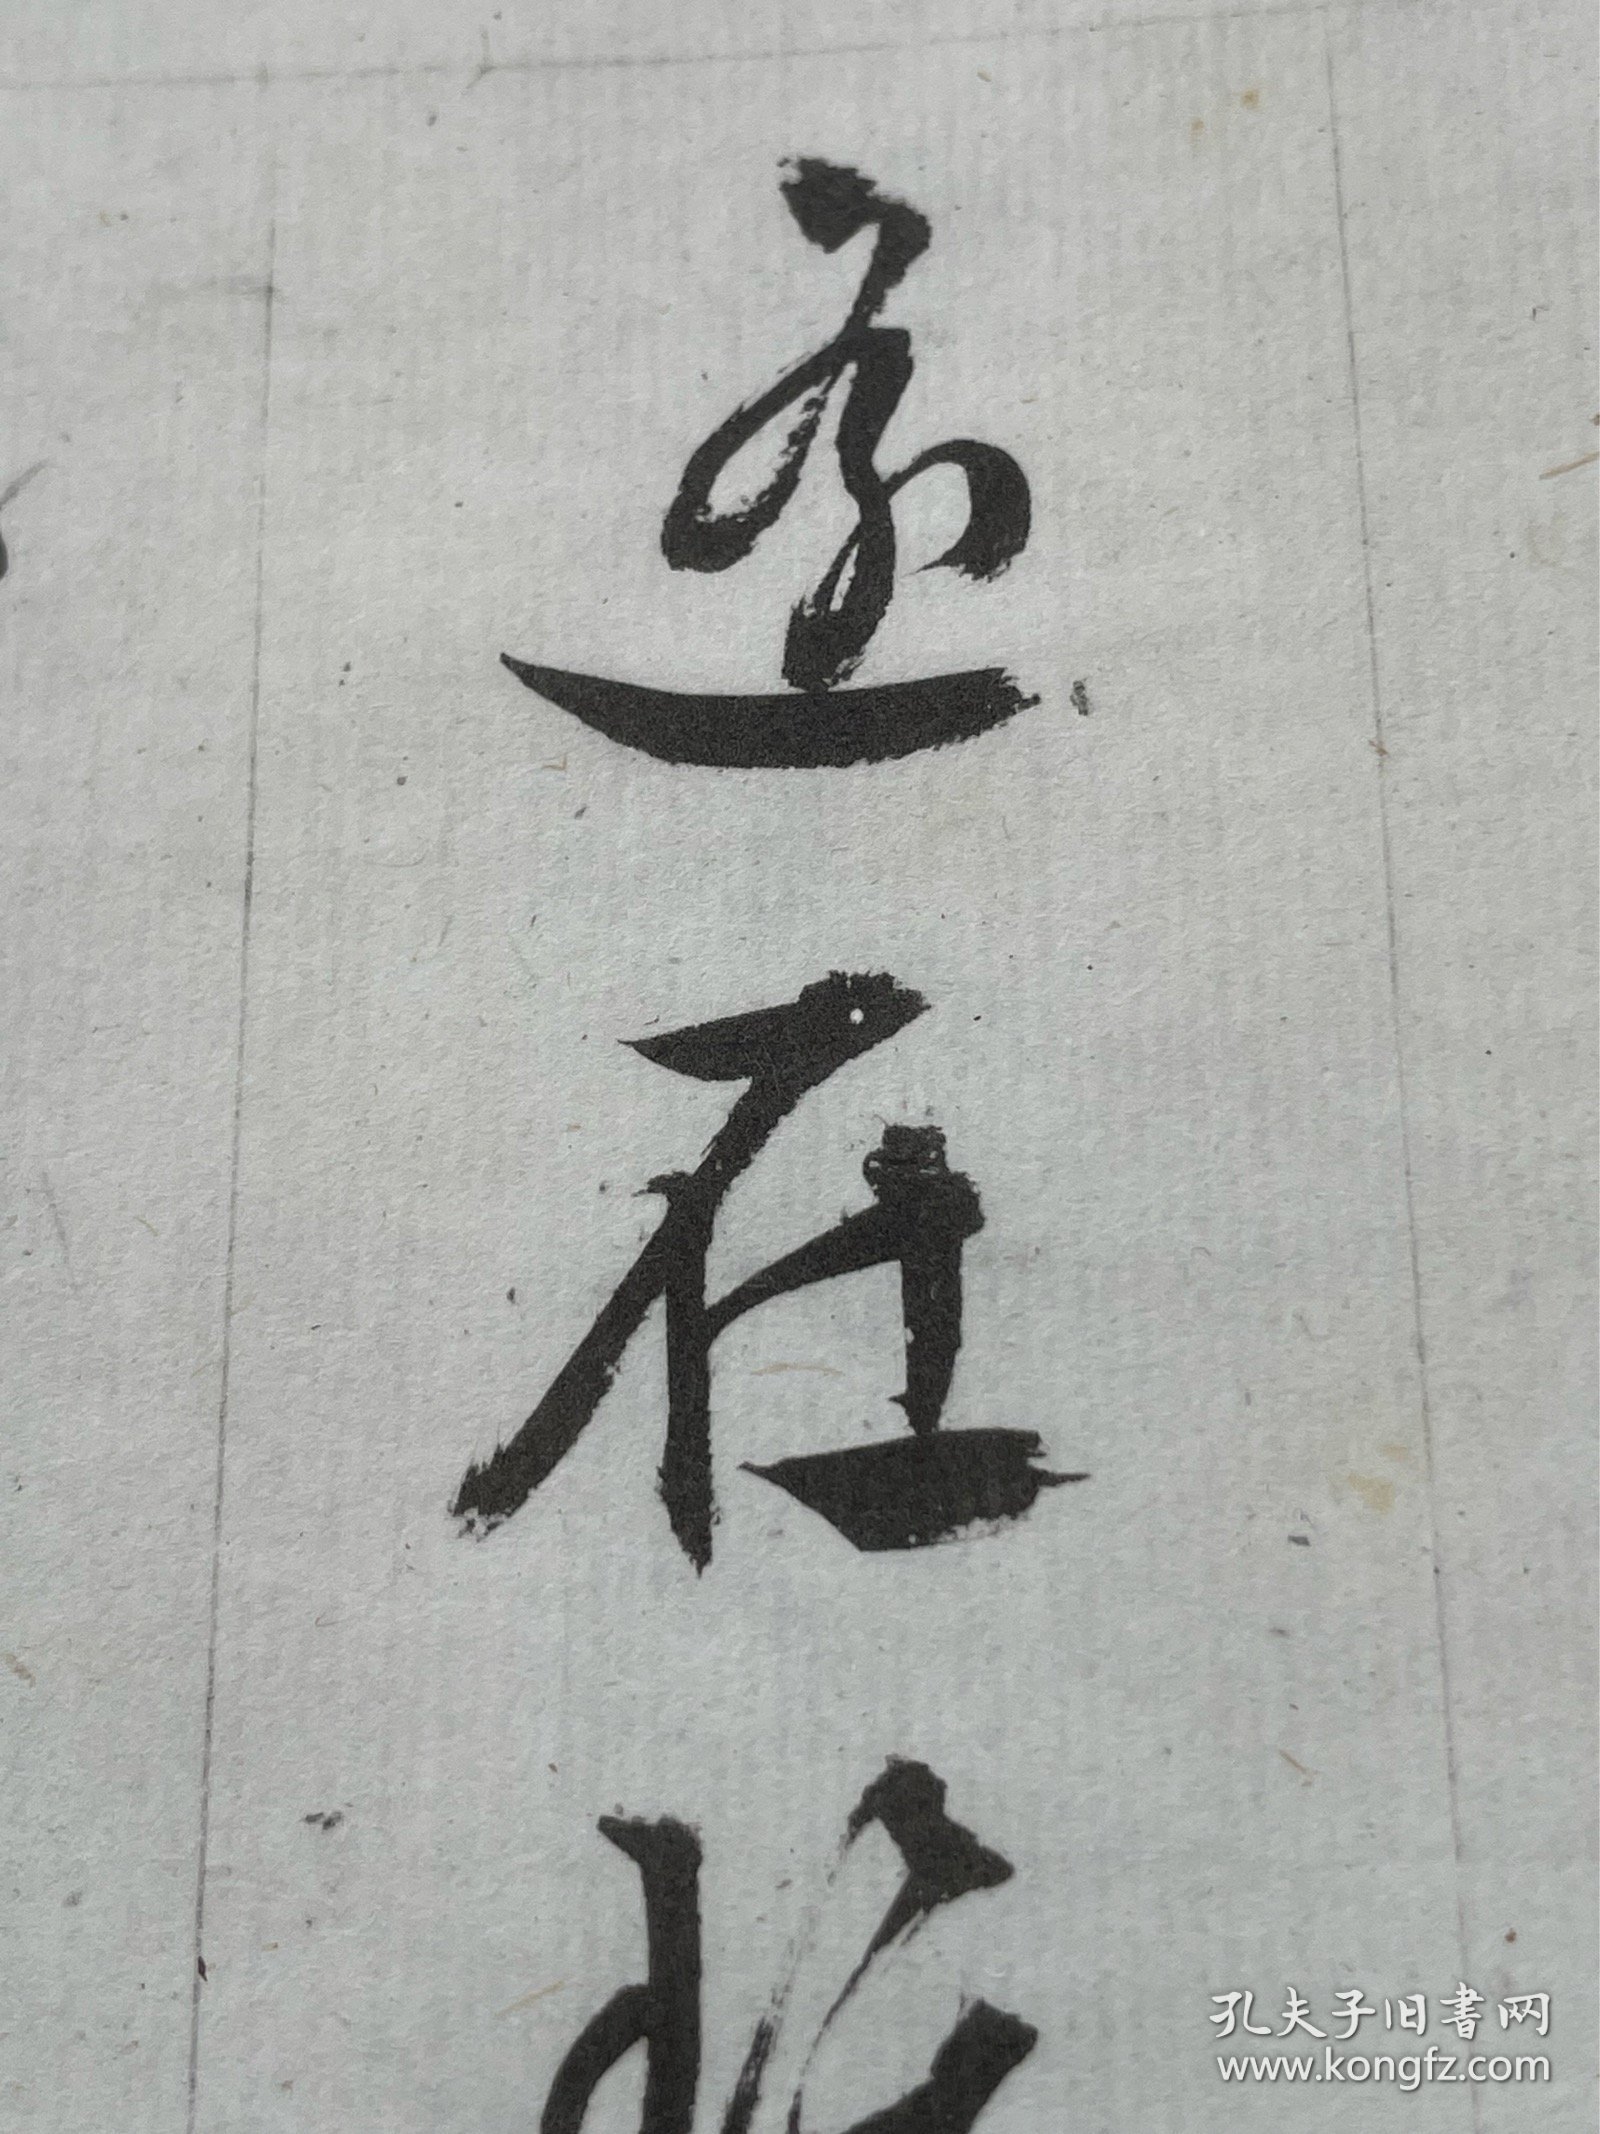 丞在
孔夫子旧書网
www.kongfz.com